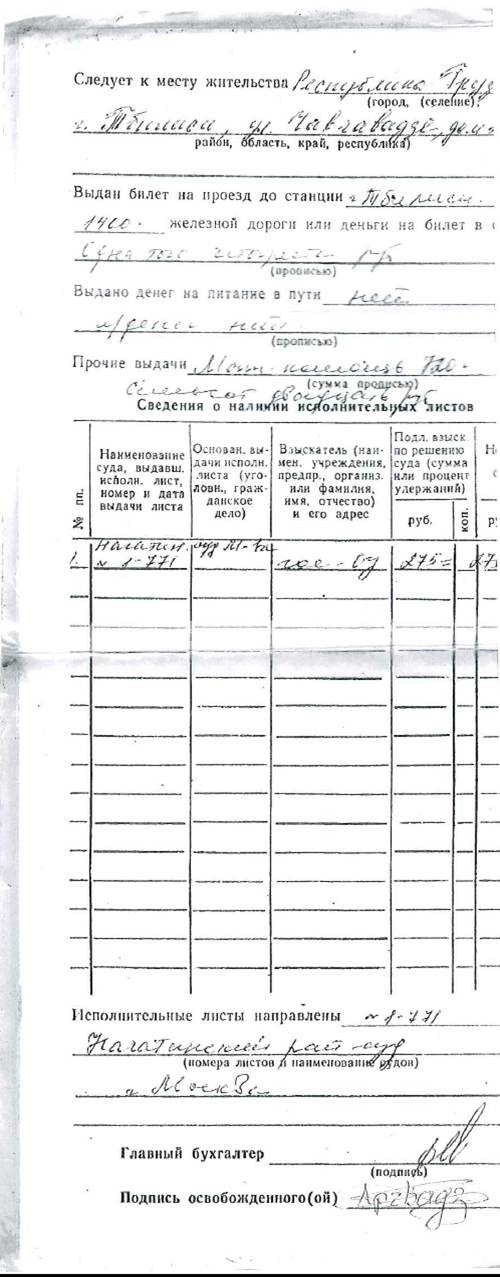 Следует к месту жительства Республика Груз
(город, (селение),
г. Тбилиси, ул. Чавчавадзе, дом
район, область, край, республика)
Выдан билет на проезд до станции г. Тбилиси
1400 железной дороги или деньги на билет в с
Одна тыс. четыреста руб
(прописью)
Выдано денег на питание в пути нет
(прописью)
Прочие выдачи Мат. помощь 720
(сумма прописью)
семьсот двадцать руб
Сведения о наличии исполнительных листов
№ пп.
Наименование суда, выдавш. исполн. лист, номер и дата выдачи листа
Основан. выдачи исполн. листа (уголовн., гражданское дело)
Взыскатель (наимен. учреждения, предпр., организ. или фамилия, имя, отчество) и его адрес
Подл. взыск по решению суда (сумма или процент удержаний)
руб.
коп.
1. Нагатин. суд
№ 1-771
275=
Исполнительные листы направлены № 1-771
Нагатинский рай суд
(номера листов и наименование судов)
г. Москва
Главный бухгалтер
(подпись)
Подпись освобожденного(ой)